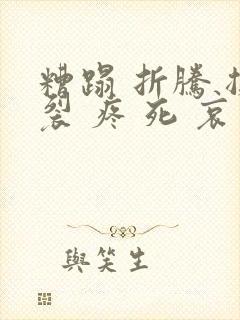 糟蹋 折騰
裂 疼 死 哀
與笑生